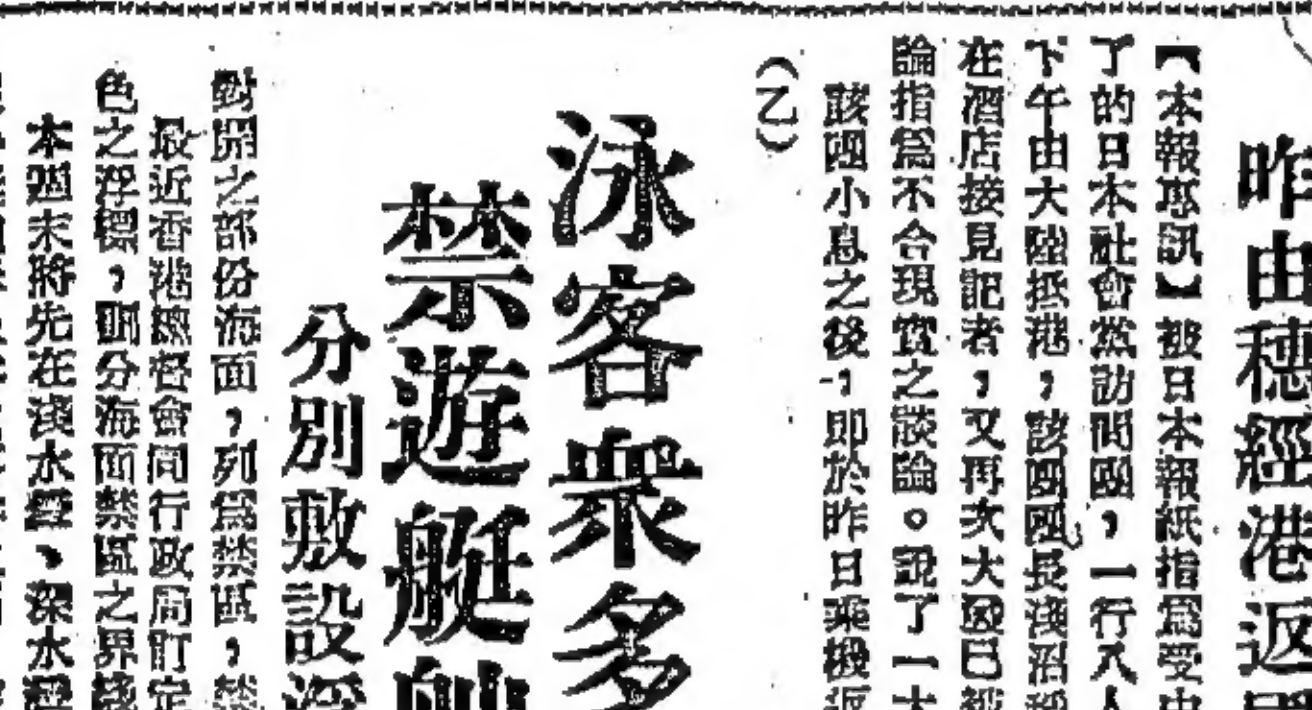 昨由穗經港返
【本報專訊】被日本報紙指爲受中
了的日本社會黨訪問團，一行八人
下午由大陸抵港，該團團長淺沼稻
在酒店接見記者，又再次大
論指爲不合現實之談論。說了一大
該團小息之後，即於昨日乘機返
（乙）
泳客衆多
禁遊艇
分別敷設浮
對開之部份海面，列爲禁區，禁
最近香港總督會同行政局訂定
色之浮標，劃分海面禁區之界綫
本週末將先在淺水灣、深水灣